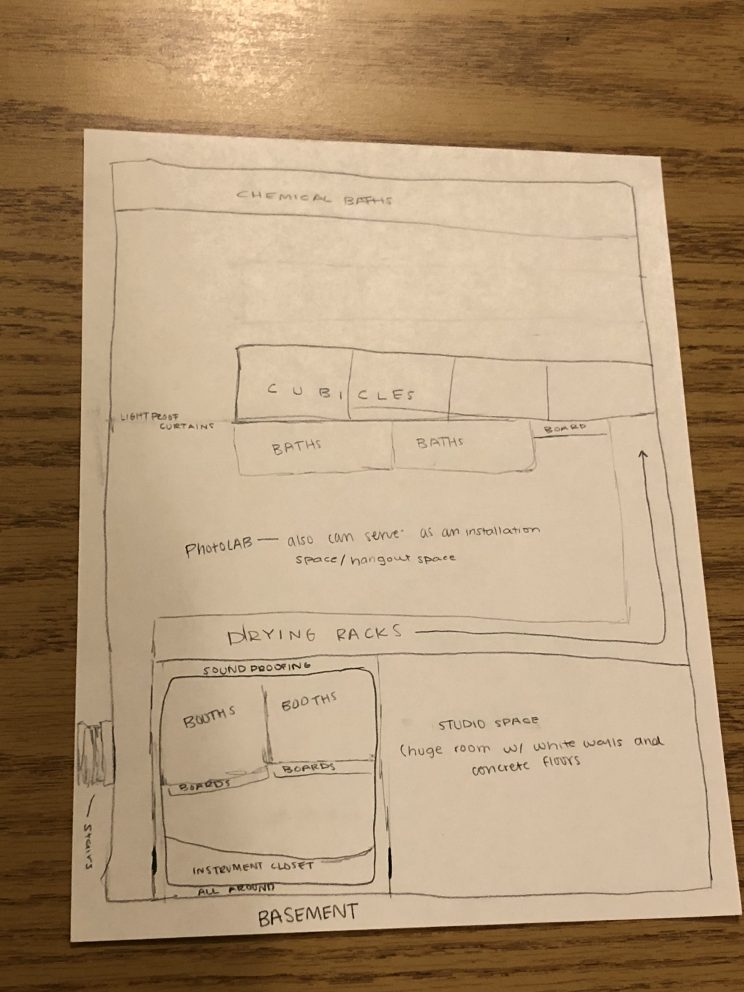 CHEMICAL BATHS
CUBICLES
LIGHTPROOF
CURTAINS
BATHS
BATHS
BOARD
PHOTOLAB — also can serve as an installation
space/hangout space
DRYING RACKS
SOUND PROOFING
BOOTHS
BOOTHS
BOARDS
BOARDS
STUDIO SPACE
(huge room w/ white walls and
concrete floors
Stairs
INSTRUMENT CLOSET
ALL AROUND
BASEMENT